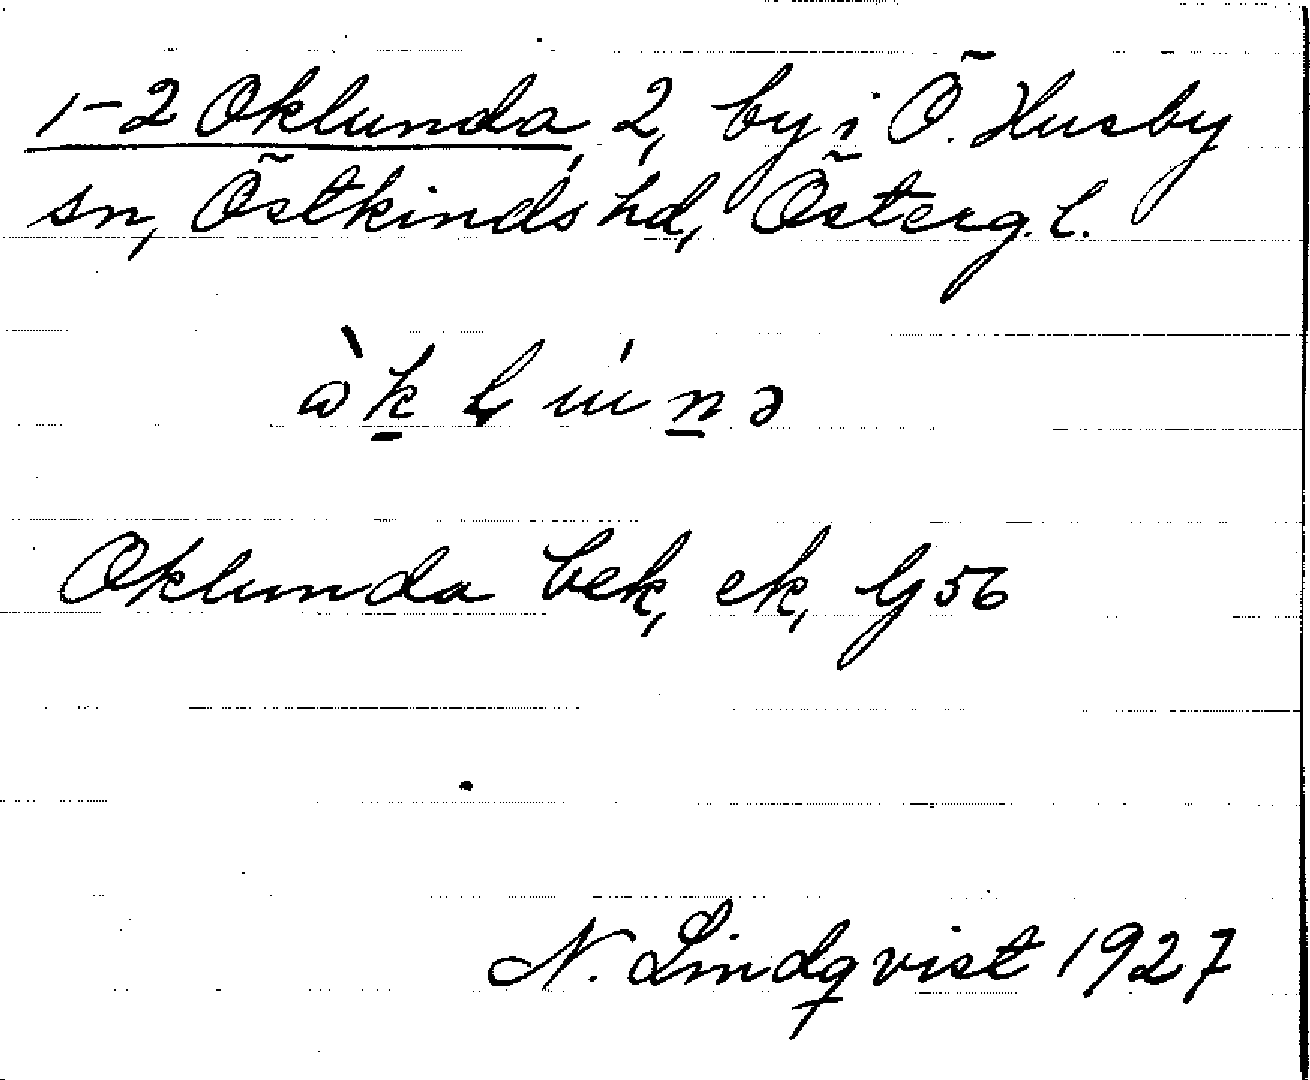 1-2 Oklunda, 2, by i Ö. Husby
sn, Östkinds hd, Österg. l.
Oklunda bek, ek, G 56
N. Lindqvist 1927